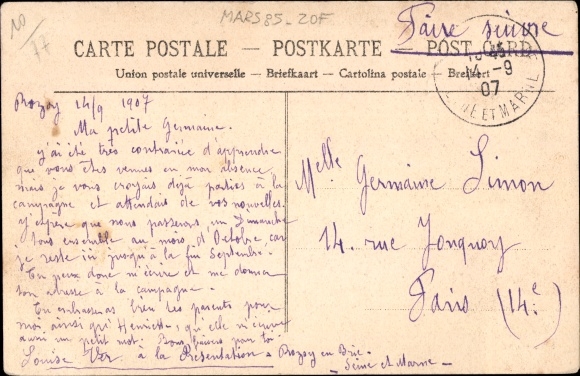 10
77
MARS 85 - 20F
Faire suivre
CARTE POSTALE — POSTKARTE — POST CARD
Union postale universelle — Briefkaart — Cartolina postale — Brefkort
14 -9
07
NE ET MARNE
Rozoy 14/9 1907
Ma petite Germaine.
j'ai été très contrariée d'apprendre
que vous êtes venues en mon absence
mais je vous croyais déjà parties à la
campagne et attendais de vos nouvelles.
J'espère que nous passerons un Dimanche
tous ensemble au mois d'Octobre car
je reste ici jusqu'à la fin Septembre.
Tu peux donc m'écrire et me donner
son adresse à la campagne.
Tu embrasseras bien tes parents pour
moi ainsi qu'Henriette, qu'elle m'écrive
aussi un petit mot. Bons baisers pour toi.
Louise à la Présentation - Rozoy en Brie -
- Seine et Marne -
Melle Germaine Simon
14. rue Jonquoy
Paris (14e)